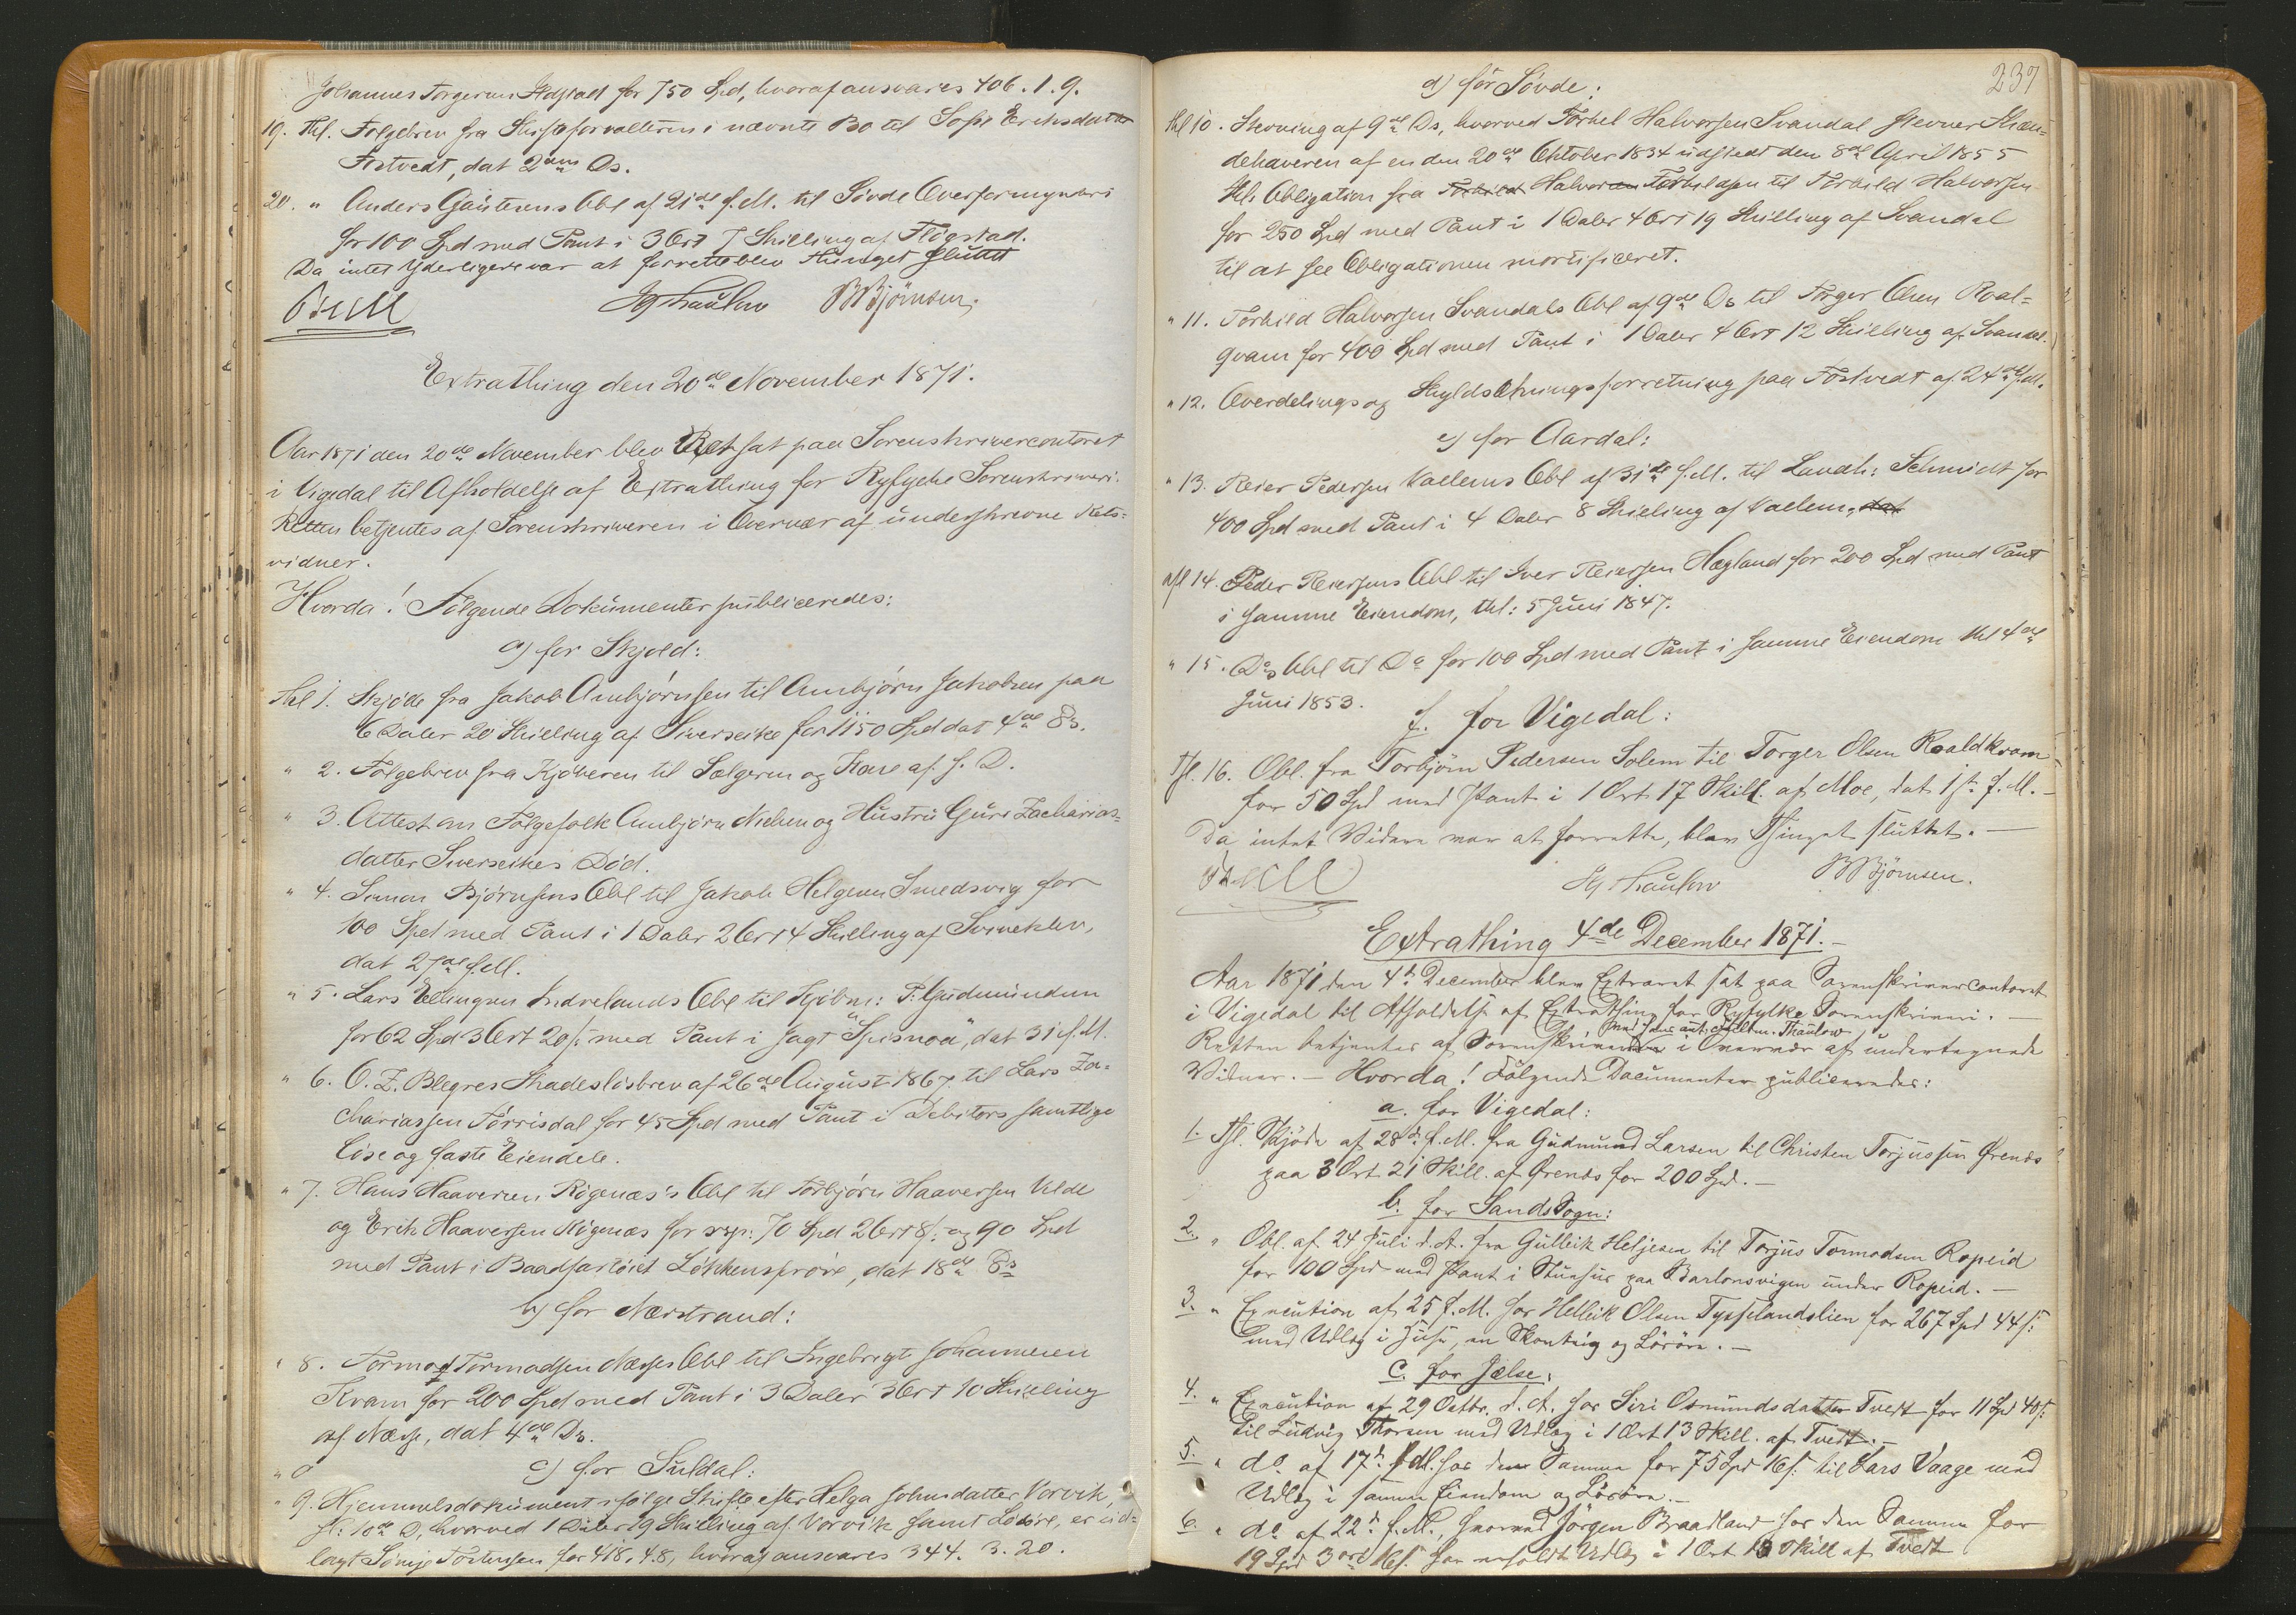 Johannes Torgersen for 750 Spd, hvoraf ansvares 406. 1. 9.
19. thl. Følgebrev fra Skifteforvalteren i nævnte Bo til Sofie Eriksdatter
Fostvedt, dat 2den Ds.
20. " Anders Gautesens Obl af 21de f. M. til Søvde Overformynderi
for 100 Spd med Pant i 3 Ort 7 Skilling af Flogstad.
Da intet yderligere var at forrette blev Thinget sluttet
Hj Thaulow BBjörnsen.
Extrathing den 20de November 1871.
Aar 1871 den 20de November blev Ret sat paa Sorenskrivercontoret
i Vigedal til Afholdelse af Extrathing for Ryfylke Sorenskriveri.
Retten betjentes af Sorenskriveren i Overvær af underskrevne Rets=
vidner.
Hvorda! Følgende Dokumenter publiceredes:
a) for Skjold:
thl 1. Skjøde fra Jakob Ambjørnsen til Ambjørn Jakobsen paa
6 Daler 20 Skilling af Siverseike for 1150 Spd dat 4de Ds.
" 2. Følgebrev fra Kjøberen til Sælgeren og Kone af s. D.
" 3. Attest om Følgefolk Ambjørn Nielsen og Hustru Guri Zacharias=
datter Siverseikes Død.
" 4. Simon Bjørnsens Obl til Jakob Helgesen Smedsvig for
100 Spd med Pant i 1 Daler 2 Ort 4 Skilling af Svineklev,
dat 27de f. M.
" 5. Lars Ellingsen Indrelands Obl til Kjøbm: P. Gudmundsen
for 62 Spd 3 Ort 20 s. med Pant i Jagt "Spisnoa", dat 31 f. M.
" 6. O. Z. Blegres Skadesløsbrev af 26de August 1867 til Lars Za=
chariassen Tørrisdal for 45 Spd med Pant i Debitors samtlige
løse og faste Eiendele.
" 7. Hans Haaversen Røgenæs's Obl til Torbjørn Haaversen Velde
og Erik Haaversen Røgenæs for resp: 70 Spd 2 Ort 8 s. og 90 Spd
med Pant i Baadfartøiet Løkkensprøve, dat 18de Ds
b) for Nærstrand:
" 8. Tormod Tormodsen Næsses Obl til Ingebrigt Johannesen
Kvam for 200 Spd med Pant i 3 Daler 3 Ort 10 Skilling
af Næsse, dat 4de Ds.
c) for Suldal:
" 9. Hjemmelsdokument ifølge Skifte efter Helga Johnsdatter Vorvik,
sl: 10de D, hvorved 1 Daler 19 Skilling af Vorvik samt Løsøre, er ud=
lagt Tostensen for 418. 4. 8, hvoraf ansvares 344. 3. 20.
237
d) for Søvde:
thl 10. Stevning af 9de Ds, hvorved Torkel Halvorsen Svandal stevner Ihæn=
dehaveren af en den 20de Oktober 1834 udstedt den 8de April 1855
thl. Obligation fra Halvor Torkelsen til Torkild Halvorsen
for 250 Spd med Pant i 1 Daler 4 Ort 19 Skilling af Svandal
til at see Obligationen mortificeret.
" 11. Torkild Halvorsen Svandals Obl af 9de Ds til Torger Olsen Roal=
qvam for 400 Spd med Pant i 1 Daler 4 Ort 12 Skilling af Svandal.
" 12. Overdelings og Skyldsætningsforretning paa Fostvedt af 24de f. M.
e) for Aardal:
" 13. Reier Pedersen Valems Obl af 31te f. M. til Landh: Schmidt for
400 Spd med Pant i 4 Daler 8 Skilling af Valem,
afl 14. Peder Reiersens Obl til Iver Reiersen Hægland for 200 Spd med Pant
i samme Eiendom, thl: 5 Juni 1847.
" 15. Ds Obl til Do for 100 Spd med Pant i samme Eiendom thl 4de
Juni 1853.
f. for Vigedal:
Tl. 16. Obl. fra Torbjörn Pedersen Solem til Torger Olsen Roaldkvam
for 50 Spd med Pant i 1 Ort 17 Skill. af Moe, dat 1st f. M. -
Da intet Videre var at forrette, blev Thinget sluttet. -
Hj Thaulow BBjörnsen.
Extrathing 4de December 1871. -
Aar 1871 den 4de December blev Extraret sat paa Sorenskrivercontoret
i Vigedal til Afholdelse af Extrathing for Ryfylke Sorenskriveri. -
Retten betjentes af Sorenskriveren i Overvær af undertegnede
Vidner. - Hvorda! Følgende Documenter publiceredes:
a. for Vigedal:
1. Tl. Skjöde af 28de f. M. fra Gudmund Larsen til Christen Torjussen Ørends
paa 3 Ort 21 Skill. af Ørends for 200 Spd. -
b. for Sands Sogn:
2. " Obl. af 24 Juli d. A. fra Gulleik Heljesen til Torjus Tormodsen Ropeid
for 100 Spd med Pant i Stuehus paa Barlonsvigen under Ropeid. -
3. " Execution af 25 f. M. hos Helleik Olsen Tysselandslien for 267 Spd 44 s.
med Udlæg i Huse, en og Lösöre. -
c. for Jelse.
4. " Execution af 29 Octbr. d. A. hos Siri Osmundsdatter Tvedt for 11 Spd 40 s.
til Ludvig Thorsen med Udlæg i 1 Ort 13 Skill. af Tvedt. -
5. " do. af 17de f. M. hos den Samme for 75 Spd 16 s. til Lars Vaage med
Udlæg i samme Eiendom og Lösöre. -
6. " do. af 22de f. M., hvorved Jörgen Braadland hos den Samme for
19 Spd 3 ort 16 s. har erholdt Udlæg i 1 Ort 13 Skill af Tvedt